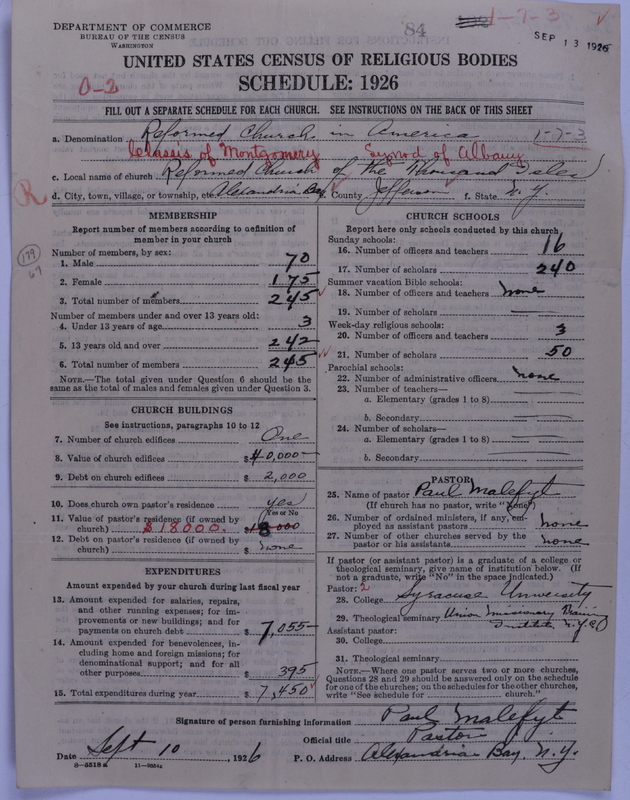 DEPARTMENT OF COMMERCE
BUREAU OF THE CENSUS
WASHINGTON
84
1-7-3
SEP 13 1926
UNITED STATES CENSUS OF RELIGIOUS BODIES
SCHEDULE: 1926
0-2
FILL OUT A SEPARATE SCHEDULE FOR EACH CHURCH. SEE INSTRUCTIONS ON THE BACK OF THIS SHEET
a. Denomination Reformed Church in America 1-7-3
Classis of Montgomery Synod of Albany
c. Local name of church Reformed Church of the Thousand Isles
R d. City, town, village, or township, etc. Alexandria Bay County Jefferson f. State N.Y.
179
69
MEMBERSHIP
Report number of members according to definition of member in your church
Number of members, by sex:
1. Male 70
2. Female 175
3. Total number of members 245
Number of members under and over 13 years old:
4. Under 13 years of age 3
5. 13 years old and over 242
6. Total number of members 245
NOTE.—The total given under Question 6 should be the
same as the total of males and females given under Question 3.
CHURCH BUILDINGS
See instructions, paragraphs 10 to 12
7. Number of church edifices One
8. Value of church edifices $40,000—
9. Debt on church edifices $ 2,000
10. Does church own pastor's residence yes
Yes or No
11. Value of pastor's residence (if owned by
church) $18000. $18000
12. Debt on pastor's residence (if owned by
church) $ none
EXPENDITURES
Amount expended by your church during last fiscal year
13. Amount expended for salaries, repairs,
and other running expenses; for im-
provements or new buildings; and for
payments on church debt $ 7,055—
14. Amount expended for benevolences, in-
cluding home and foreign missions; for
denominational support; and for all
other purposes $ 395
15. Total expenditures during year $ 7,450
CHURCH SCHOOLS
Report here only schools conducted by this church
Sunday schools:
16. Number of officers and teachers 16
17. Number of scholars 240
Summer vacation Bible schools:
18. Number of officers and teachers none
19. Number of scholars
Week-day religious schools:
20. Number of officers and teachers 3
21. Number of scholars 50
Parochial schools:
22. Number of administrative officers none
23. Number of teachers—
a. Elementary (grades 1 to 8)
b. Secondary
24. Number of scholars—
a. Elementary (grades 1 to 8)
b. Secondary
PASTOR
25. Name of pastor Paul Malefyt
(If church has no pastor, write "none")
26. Number of ordained ministers, if any, em-
ployed as assistant pastors none
27. Number of other churches served by the
pastor or his assistants none
If pastor (or assistant pastor) is a graduate of a college or
theological seminary, give name of institution below. (If
not a graduate, write "No" in the space indicated.)
Pastor: 2
28. College Syracuse University
29. Theological seminary Union Missionary
Institute N.Y.C.
Assistant pastor:
30. College
31. Theological seminary
NOTE.—Where one pastor serves two or more churches,
Questions 28 and 29 should be answered only on the schedule
for one of the churches; on the schedules for the other churches,
write "See schedule for church."
Signature of person furnishing information Paul Malefyt
Official title Pastor
Date Sept 10, 1926 P. O. Address Alexandria Bay. N.Y.
8-5518 a 11-9554a